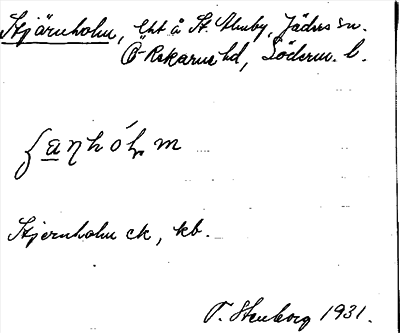 Stjärnholm, lht å St. Åluby, Jäders sn.
Ö-Rekarne hd, Söderm. l.
ʃaŋhóɫm
Stjernholm ck, kb.
T. Stenborg 1931.